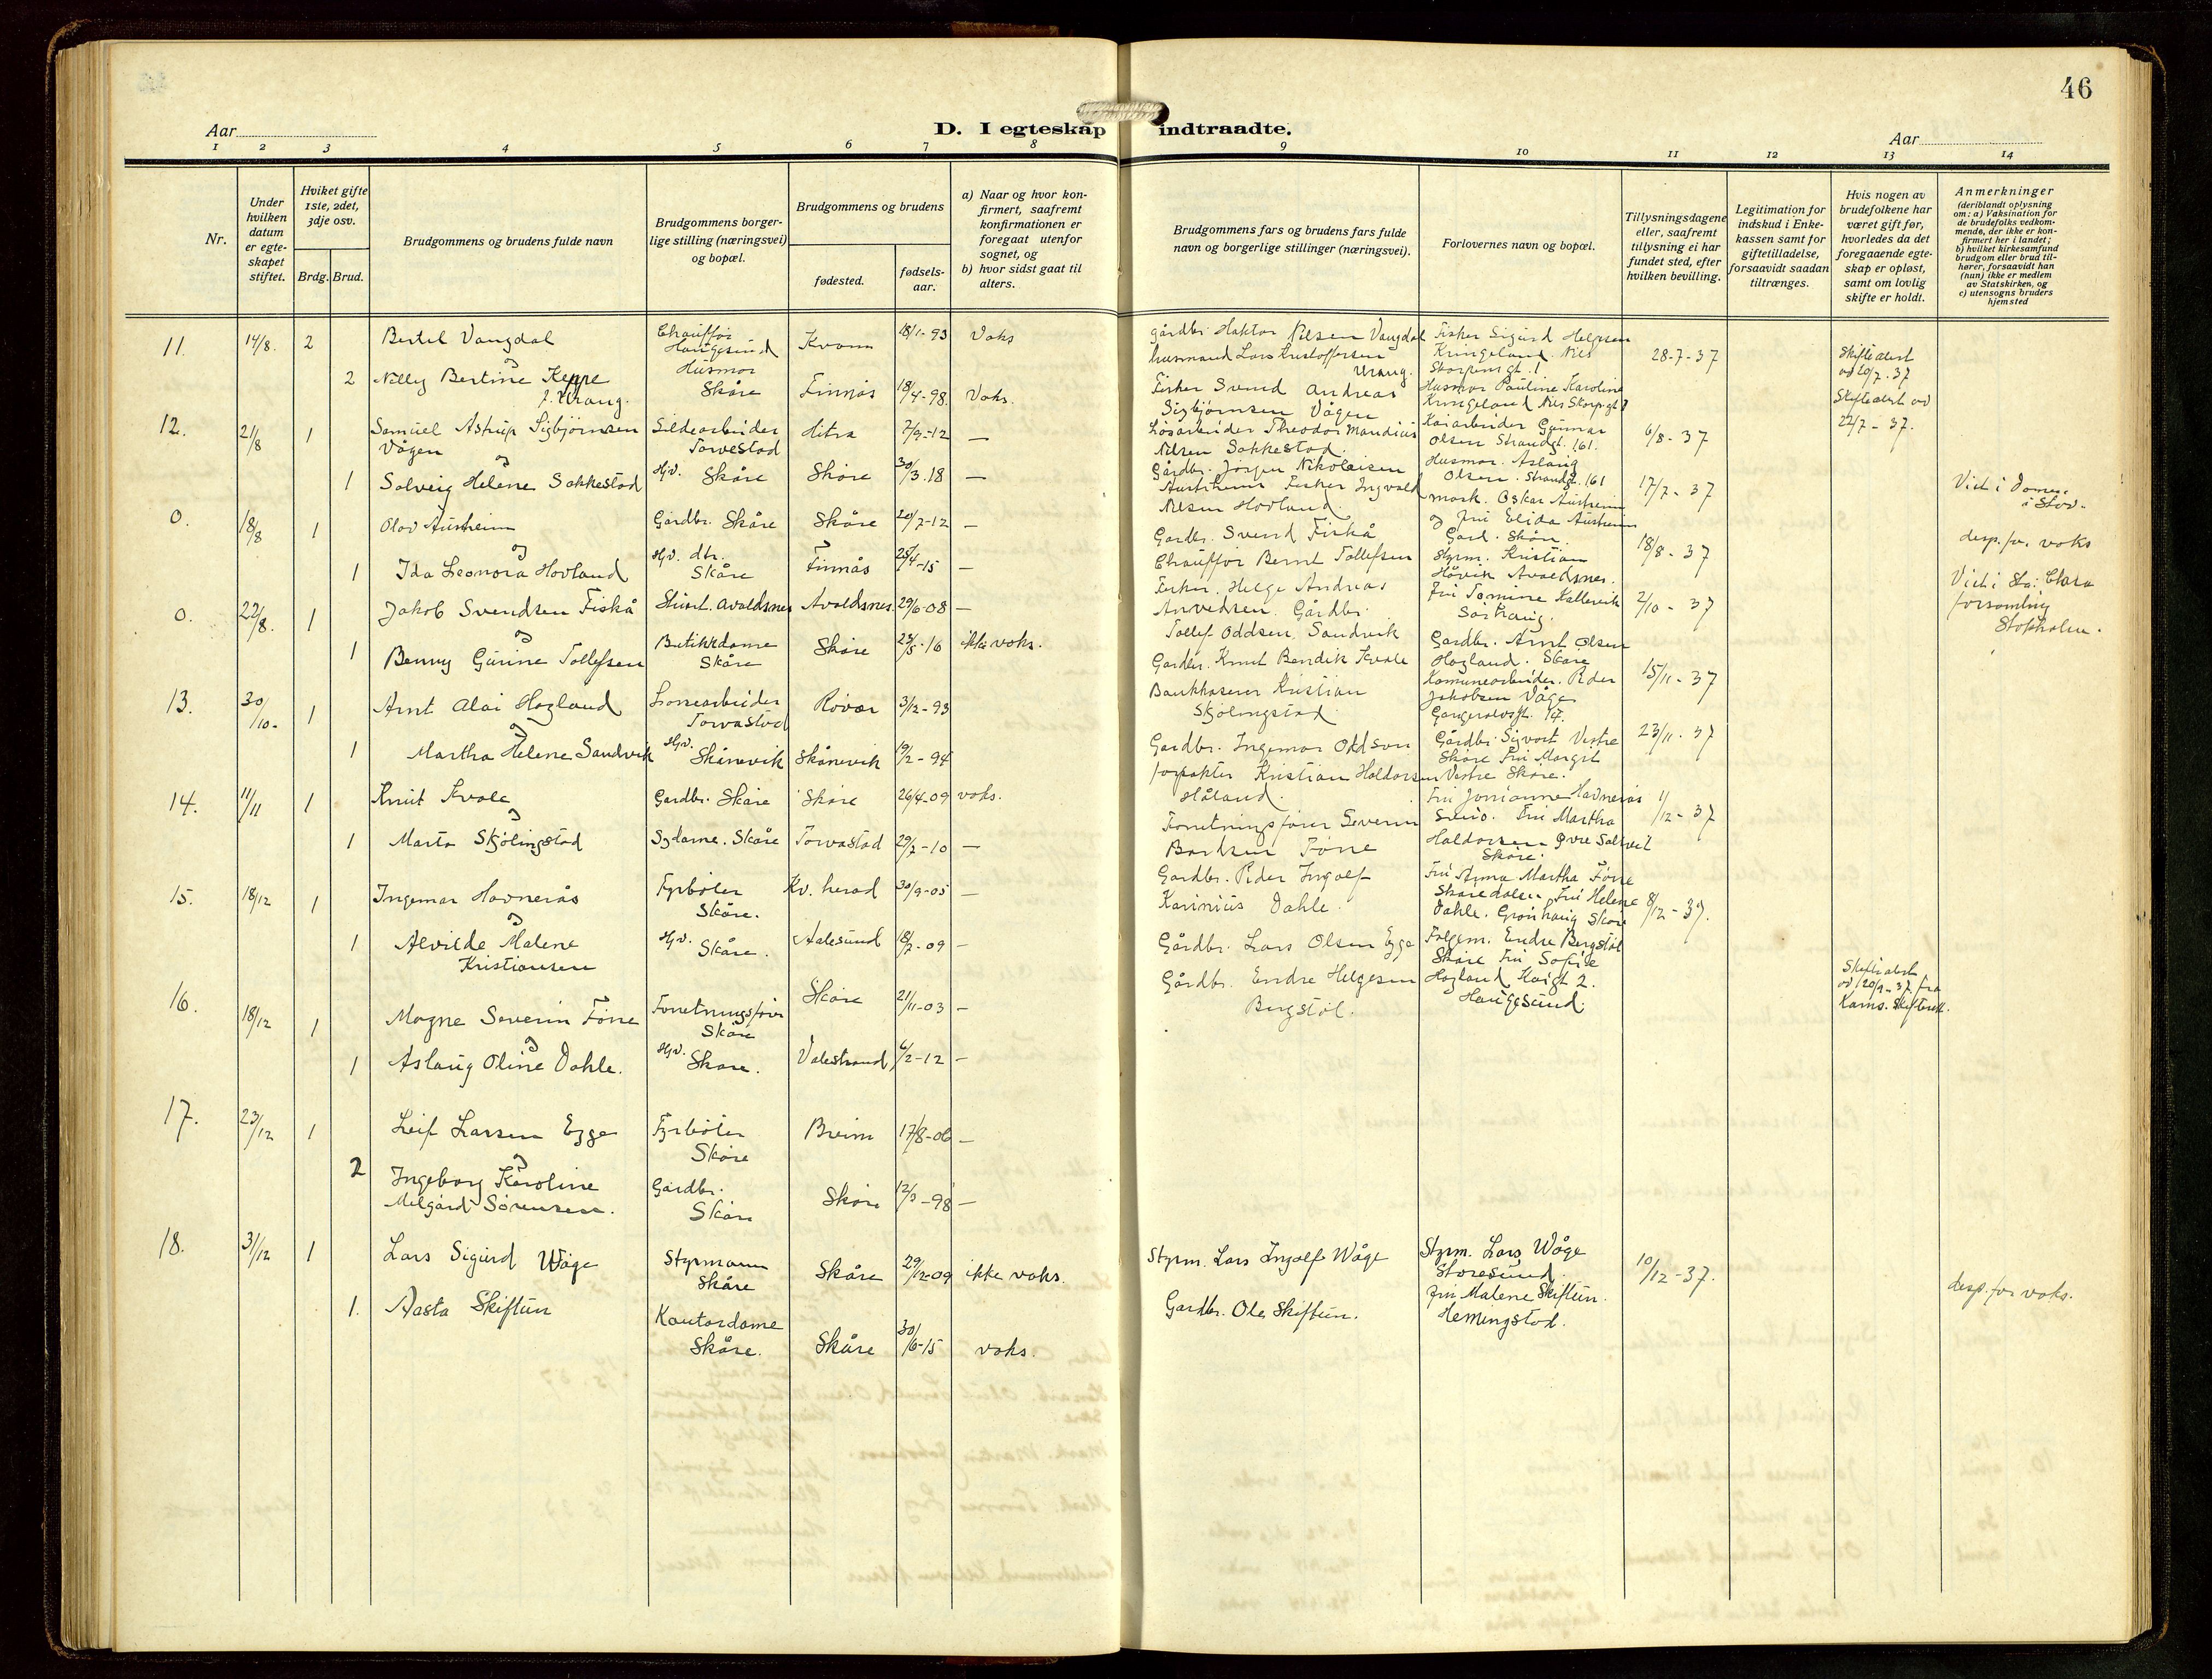 46
Aar
D. I egteskap indtraadte.
Aar
1 2 3 4 5 6 7 8 9 10 11 12 13 14
Nr.
Under hvilken datum er egteskapet stiftet.
Hviket gifte 1ste, 2det, 3dje osv.
Brdg. Brud.
Brudgommens og brudens fulde navn
Brudgommens borgerlige stilling (næringsvei) og bopæl.
Brudgommens og brudens
fødested.
fødselsaar.
a) Naar og hvor konfirmert, saafremt konfirmationen er foregaat utenfor sognet, og
b) hvor sidst gaat til alters.
Brudgommens fars og brudens fars fulde navn og borgerlige stillinger (næringsvei).
Forlovernes navn og bopæl.
Tillysningsdagene eller, saafremt tillysning ei har fundet sted, efter hvilken bevilling.
Legitimation for indskud i Enkekassen samt for giftetilladelse, forsaavidt saadan tiltrænges.
Hvis nogen av brudefolkene har været gift før, hvorledes da det foregaaende egteskap er opløst, samt om lovlig skifte er holdt.
Anmerkninger (deriblandt oplysning om: a) Vaksination for de brudefolks vedkommende, der ikke er konfirmert her i landet; b) hvilket kirkesamfund brudgom eller brud tilhører, forsaavidt han (hun) ikke er medlem av Statskirken, og c) utensogns bruders hjemsted
11. 14/8. 2 Bertel Vangdal Chauffør Haugesund Kvam 18/1-93 Vaks
og
2 Nelly Bertine Keppe f. Urang. Husmor Skåre Finnås 18/4-98. Vaks.
12. 21/8 1 Samuel Astrup Sigbjørnsen Vågen Sildearbeider Torvestad Hitra 7/9-12 —
og
1 Solveig Helene Sakkestad Hjv. Skåre Skåre 30/3.18 —
0. 18/8 1 Olav Austrheim Gardbr. Skåre Skåre 20/7-12 —
og
1 Ida Leonora Hovland Hjv. dtr. Skåre Finnås 25/4-15 —
0. 22/8. 1 Jakob Svendsen Fiskå Stuert. Avaldsnes Avaldsnes. 29/6-08 —
og
1 Benny Gurine Tollefsen Butikkdame Skåre Skåre 23/5-16 ikke vaks.
13. 30/10. 1 Arnt Alai Hagland Losearbeider Torvastad Røvær 3/12-93
og
1 Martha Helene Sandvik Hjv. Skånevik Skånevik 19/2-94
14. 11/11 1 Knut Kvale Gardbr. Skåre Skåre 26/4-09 vaks.
og
1 Marta Skjølingstad Sydame. Skåre Torvastad 29/7-10 —
15. 18/12 1 Ingemar Havnerås Fyrbøter Skåre. Kv. herad 30/9-05 —
og
1 Alvilde Malene Kristiansen Hjv. Skåre. Aalesund 18/7-09 —
16. 18/12 1 Magne Severin Førre Forretningsfører Skåre Skåre 21/11-03 —
og
1 Aslaug Oline Dahle. Hjv. Skåre. Valestrand 6/2-12 —
17. 23/12 1 Leif Larsen Egge Fyrbøter Skåre Breim 17/8-06 —
og
2 Ingeborg Karoline Melgård Sørensen. Gardbr. Skåre Skåre 12/3-98 —
18. 31/12 1 Lars Sigurd Våge Styrmann Skåre Skåre 29/12-09 ikke vaks.
1. Aasta Skiftun Kontordame Skåre. Skåre 30/6-15 vaks.
gårdbr. Haktor Nilsen Vangdal
husmand Lars Kristoffersen Urang.
Fisker Svend Andreas
Sigbjørnsen Vågen
Løsarbeider Theodor Mandius
Nilsen Sakkestad.
Gårdbr. Jørgen Nikolaisen
Austrheim Fisker Ingvald
Nilsen Hovland.
Gardbr. Svend Fiskå
Chauffør Bernt Tollefsen
Fisker. Helge Andreas
Arvedsen. Gårdbr.
Tollef Oddsen Sandvik
Gardbr. Knut Bendik Kvale
Bankkaserer Kristian
Skjølingstad
Gardbr. Ingemar Oddson
forpakter Kristian Haldorsen
Håland.
Forretningsfører Severin
Bårdsen Førre
Gardbr. Peder Ingolf
Karinius Dahle.
Gårdbr. Lars Olsen Egge
Gårdbr. Endre Helgesen
Bergstøl.
Styrm. Lars Ingolf Våge
Gardbr. Ole Skiftun.
Fisker Sigurd Helgesen
Kringeland. Nils
Skorpensgt. 1
Husmor Pauline Karoline
Kringeland Nils Skorp.gt 1
Kaiarbeider Gunnar
Olsen Strandgt. 161.
Husmor. Aslaug
Olsen. Strandgt. 161
mask. Oskar Austrheim
og fru Elida Austrheim
Gard. Skåre.
Styrm. Kristian
Håvik Avaldsnes.
Fru Tomine Kallevik
Sørhaug.
Gardbr. Arnt Olsen
Hagland. Skåre
Komunearbeider. Peder
Jakobsen Våge
Gangerolvsgt. 14.
Gårdbr. Sigvart Vestre
Skåre Fru Margit
Vestre Skåre.
Fru Jonianne Havnerås
Sveio. Fru Martha
Haldorsen Øvre Saltveit
Skåre.
Fru Anna Martha Førre
Skåredalen Fru Helene
Dahle. Grønhaug Skåre
Følgem. Endre Bergstøl
Skåre Fru Sofie
Hagland Kaigt 2.
Haugesund.
Styrm. Lars Våge
Storesund.
fru Malene Skiftun.
Hemingstad.
28-7-37
6/8-37
17/7-37
18/8-37
2/10-37
15/11-37
23/11-37
1/12-37
8/12-37.
10/12-37.
Skifteattest
av 20/7.37
Skifteattest av
22/7-37.
Skifteattest
av 20/9-37 fra
Karms. Skifterett.
Viet i Domen
i Stav.
desp. for. vaks
Viet i Sta: Clara
forsamling
Stokholm.
desp. for vaks.